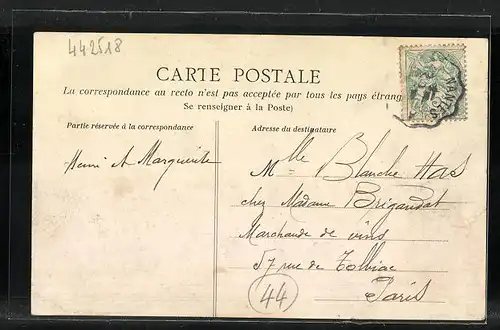 442518
CARTE POSTALE
La correspondance au recto n'est pas acceptée par tous les pays étrang
Se renseigner à la Poste)
Partie réservée à la correspondance
Adresse du destinataire
Henri et Marguerite
Mlle Blanche Has
chez Madame Brigandat
Marchande de vins
57 rue de Tolbiac
Paris
44